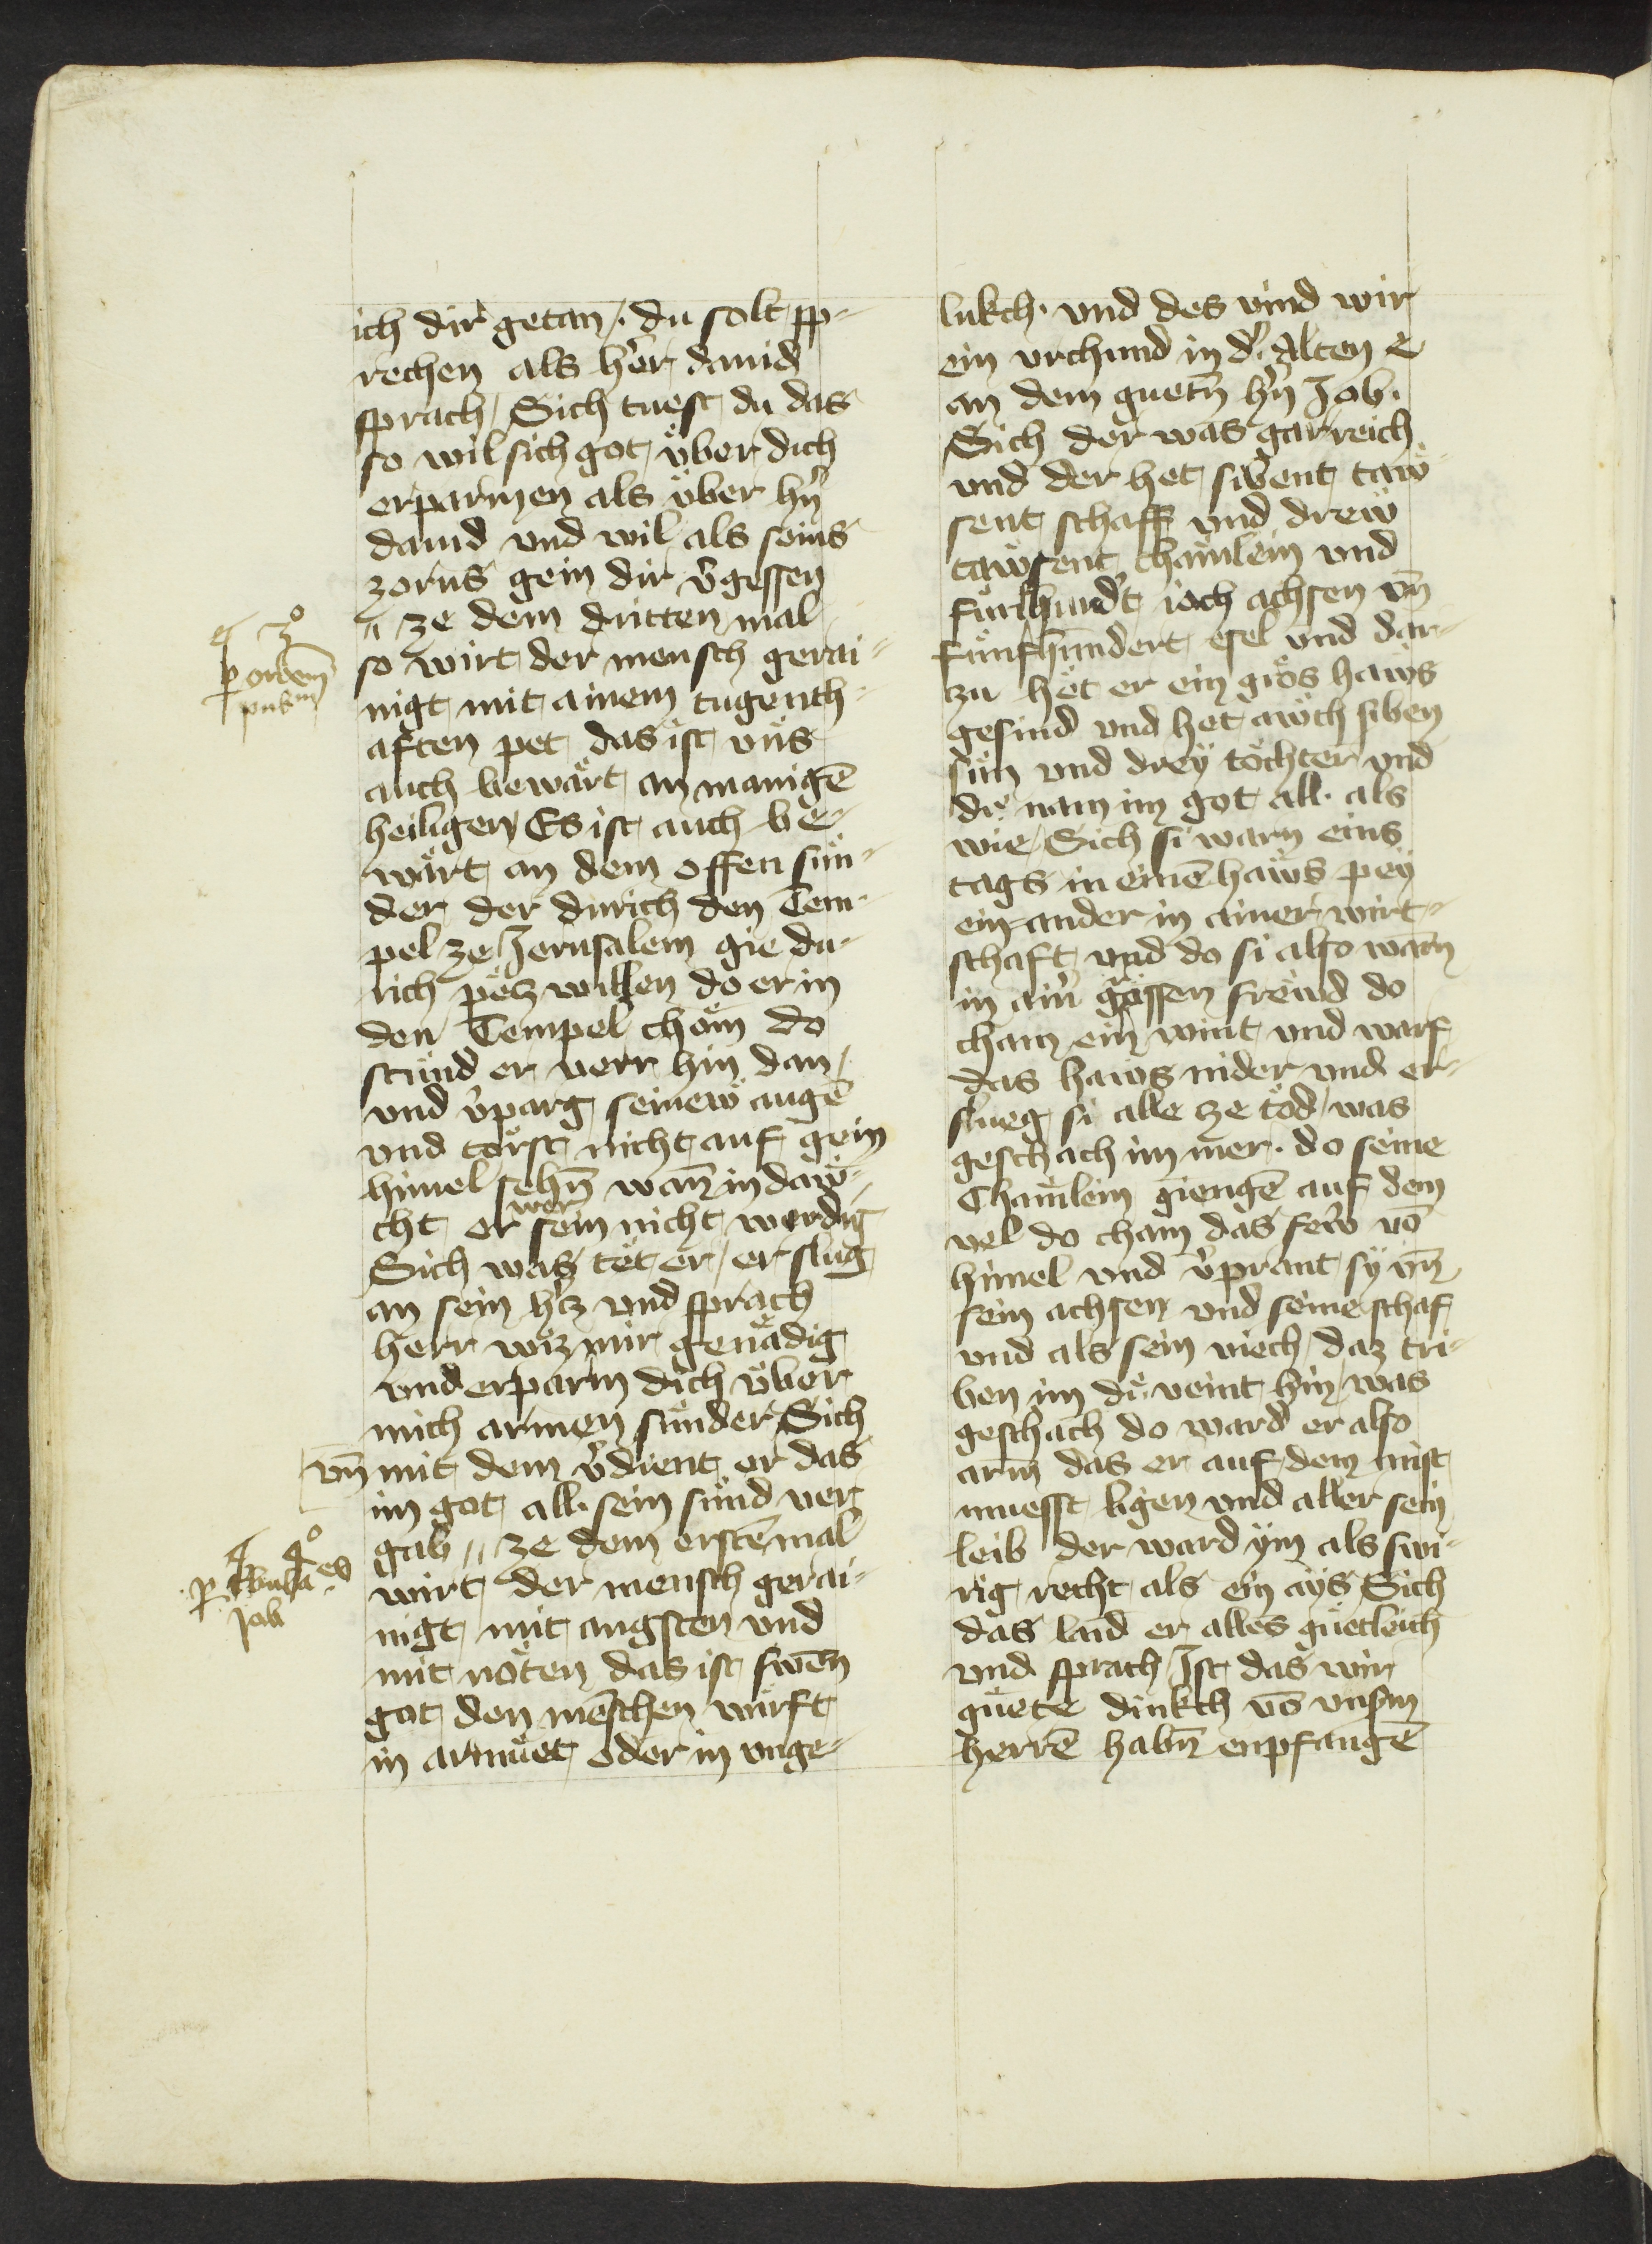 ich dir getan /. du solt sp-
rechen als h᷑er dauid
sprach / Sich tuest du das
so wil sich got v̈ber dich
erparmen als v̈ber hn᷑
dauid vnd wil als seins
zorns gein dir v᷑gessen
〃 ze dem dritten mal
so wirt der mensch gerai-
nigt mit ainem tugenth-
aften pet das ist vns
auch bewärt an manigē
heiligen / Es ist auch be-
wärt an dem offen sün-
der der durich den Tem-
pel ze Jerusalem gie du-
rich petz willen do er in
den Tempel chöm do
stünd er verr hin dan /
vnd v᷑parg seinew augē
vnd torst nicht auf gein
himel sehn̄ wan̄ in daw-
cht er wer sein nicht werdig
Sich was tet er / er slug
an sein h᷑tz vnd sprach
herr wiz mir genädig
vnd erparm dich v̈ber
mich armen sünder / Sich
vn̄ mit dem v᷑dient er das
im got all sein sünd ver
gab 〃 ze dem erstē mal
wirt der mensch gerai-
nigt mit angsten vnd
mit nöten das ist swen̄
got den mēschen würft
in armuet oder in vnge-
3º
p orōem
pub
4º
p tbulaes
Job
lukch. vnd des vind wir
ein vrchund in d᷑ Alten e
an dem guetn̄ hn᷑ Job.
Sich der was gar reich
vnd der het sibent taw-
sent schaff vnd drew
tawsent chämlein vnd
fünfhund᷑t ioch achsen vn̄
fünfhundert esel vnd dar-
zu het er ein gros haws
gesind vnd het awch siben
sün vnd drey töchter vnd
die nam im got all. als
wie / Sich si warn eins
tags in einē haws pey
ein-ander in ainer wirt-
schaft vnd do si also warn̄
in ain᷑ grössen frewd do
cham ein wint vnd warf
das haws nider vnd er-
slueg si alle ze tod / was
geschach im mer. do seine
Chamlein giengē auf dem
vel do cham das fewr vō
himel vnd v᷑prant sy vn̄
sein achsen vnd seine schaf
vnd als sein viech / daz tri-
ben im die veint hin / was
geschach do ward er also
arm das er auf dem mist
muesst ligen vnd aller sein
leib der ward ym als swi-
rig recht als ein ays / Sich
das laid er alles guetleich
vnd sprach / Ist das wir
guete dinkch vō vnsm
herrē habn̄ enpfangē